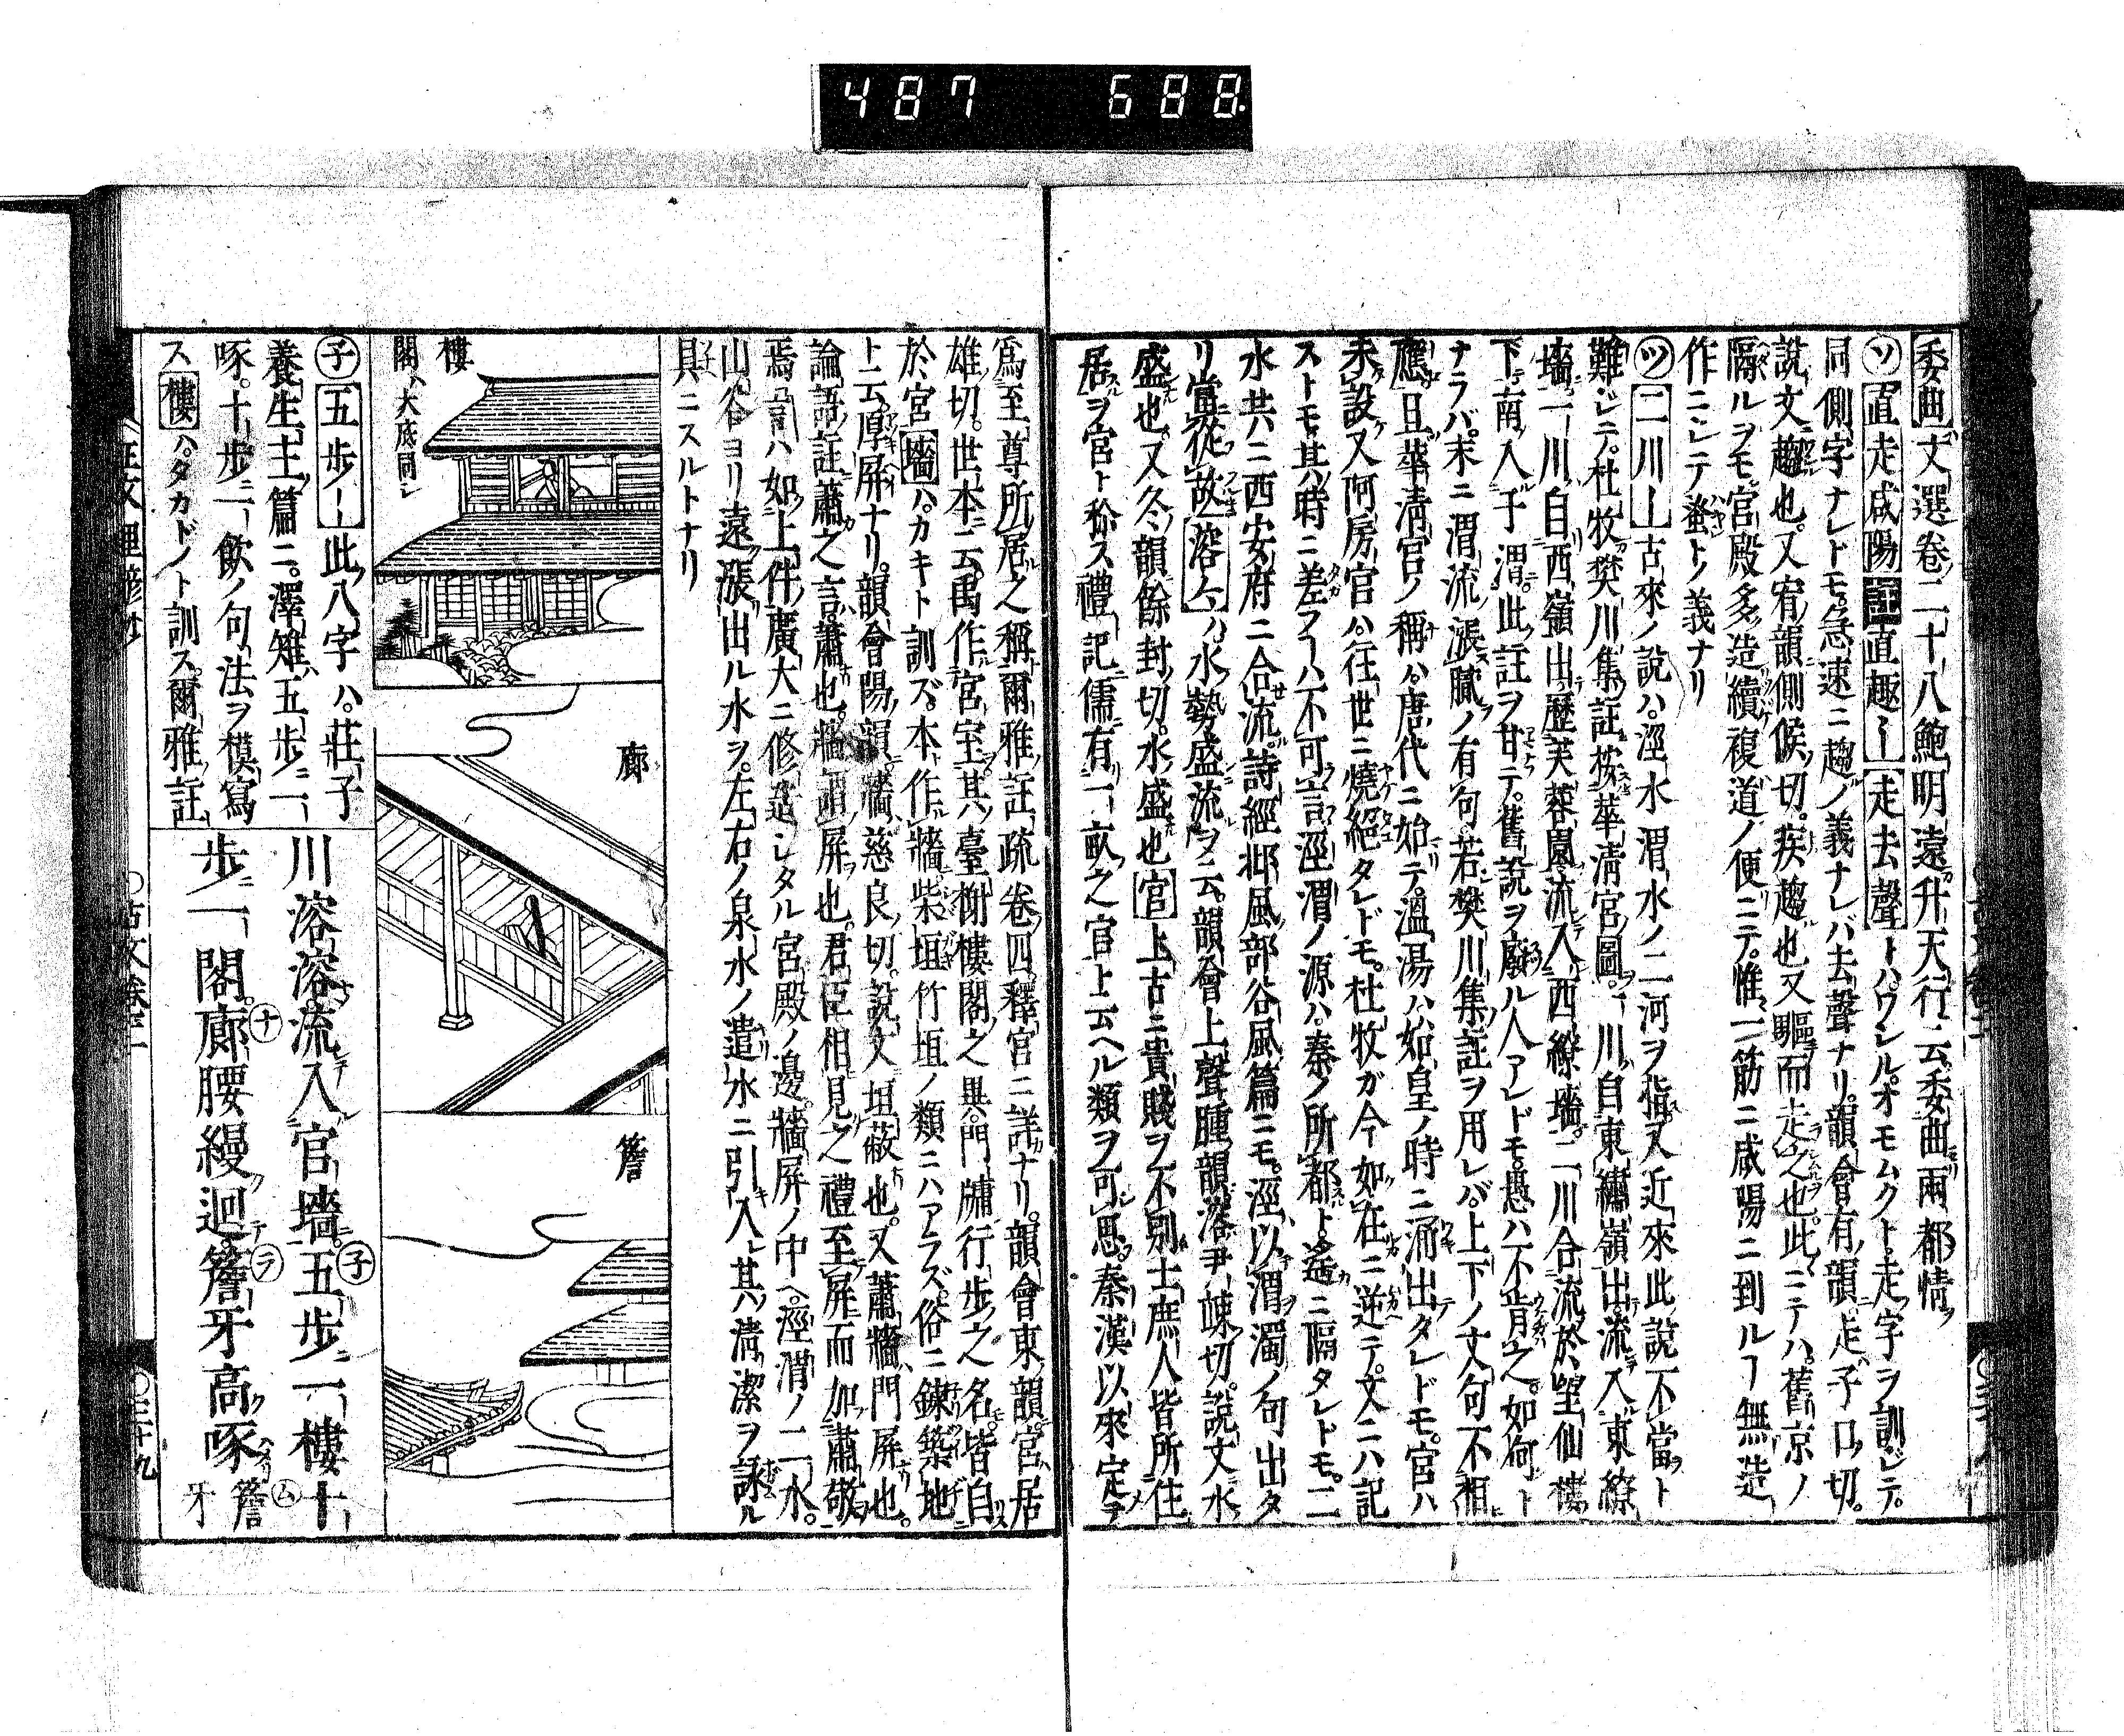 487 688
委曲文選卷二十八鮑明遠升天行云委曲兩都情
ソ直走咸陽註直趣ー走去聲トハワシルオモムクト走字ヲ訓ジテ。
同側字ナレトモ。急速ニ趨ノ義ナレバ去聲ナリ。韻會有韻走子口切。
說文趨也。又宥韻側候切。疾趨也又驅而走之也。此ニテハ舊京ノ
隔ルヲモ宮殿多造續複道ノ便ニテ。惟一筋ニ咸陽ニ到ルヿ無造
作ニシテ蚤トノ義ナリ
ツ二川ー古來ノ說ハ。涇水渭水ノ二河ヲ指ス近來此說不當ト
難ジテ。杜牧樊川集註按華清宮圖。一川自東繡嶺出流入東繚
墻一川自西嶺出歷芙蓉園流入西繚墻。二川合流於望仙樓
下南入于渭。此註ヲ甘テ。舊說ヲ廢ル人アレドモ。愚ハ不肯之。如何ト
ナラバ。末ニ渭流漲膩ノ有句。若樊川集註ヲ用レバ。上下ノ文句不相
應且華清宮ノ稱ハ。唐代ニ始テ。溫湯ハ始皇ノ時ニ涌出タレドモ。宮ハ
未設又阿房宮ハ。往世ニ燒絕タレドモ。杜牧ガ今如在ニ逆テ。文ニハ記
ストモ。其時ニ差フヿハ不可言涇渭ノ源ハ。秦ノ所都ト遙ニ隔タレトモ。二
水共ニ西安府ニ合流。詩經邶風部谷風篇ニモ。涇以渭濁ノ句出タ
リ當從故溶々ハ水勢盛流ヲ云。韻會上聲腫韻溶尹竦切。說文水
盛也又冬韻餘封切。水盛也宮上古ニ貴賤ヲ不別士庶人皆所住
居ヲ宮ト称ス禮記儒有一畝之宮ト云ヘル類ヲ可思秦漢以來定テ
爲至尊所居之稱爾雅註疏卷四釋宮ニ詳ナリ。韻會東韻宮居
雄切。世本ニ云。禹作宮室其臺榭樓閣之異。門牖行步之名。皆自
於宮墻ハ。カキト訓ズ。本作牆柴垣竹垣ノ類ニハアラズ。俗ニ鍊築地
ト云。厚屏ナリ。韻會陽韻牆慈良切。說文垣蔽也。又蕭牆門屏也。
論語註蕭之言。肅也。牆謂屏也。君臣相見之禮至屏而加肅敬
焉ハ如上件廣大ニ修造シタル宮殿ノ邊。牆屏ノ中ヘ。涇渭ノ二水。
山谷ヨリ遠漲出ル水ヲ。左右ノ泉水ノ遣水ニ引入レ其淸潔ヲ詠ル
具ニスルトナリ
樓
閣ハ大底同シ
廊
簷
子五步ー此八字ハ。莊子
養生主篇ニ。澤雉五步ニ一
啄。十步ニ一飮ノ句法ヲ模寫
ス樓ハ。タカドノト訓ス。爾雅註
川溶溶流入宮墻子五步一樓十
步一閣。ナ廊腰縵迴ラ簷牙高啄ム簷
牙